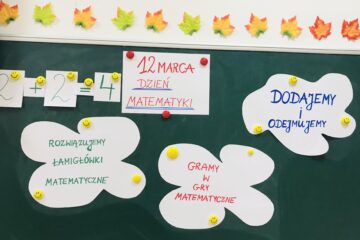 2 + 2 = 4
12 MARCA
DZIEŃ
MATEMATYKI
DODAJEMY
i
ODEJMUJEMY
ROZWIĄZUJEMY
ŁAMIGŁÓWKI
MATEMATYCZNE
GRAMY
W
GRY
MATEMATYCZNE